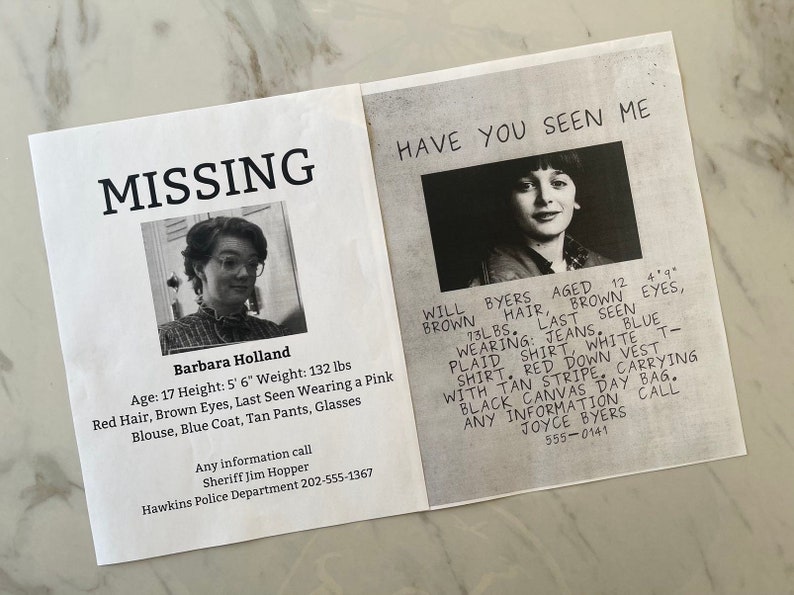 MISSING
Barbara Holland
Age: 17 Height: 5' 6" Weight: 132 lbs
Red Hair, Brown Eyes, Last Seen Wearing a Pink
Blouse, Blue Coat, Tan Pants, Glasses
Any information call
Sheriff Jim Hopper
Hawkins Police Department 202-555-1367
HAVE YOU SEEN ME
WILL BYERS AGED 12 4'9"
BROWN HAIR, BROWN EYES,
73LBS. LAST SEEN
WEARING: JEANS. BLUE
PLAID SHIRT WHITE T-
SHIRT. RED DOWN VEST
WITH TAN STRIPE. CARRYING
BLACK CANVAS DAY BAG.
ANY INFORMATION CALL
JOYCE BYERS
555-0141